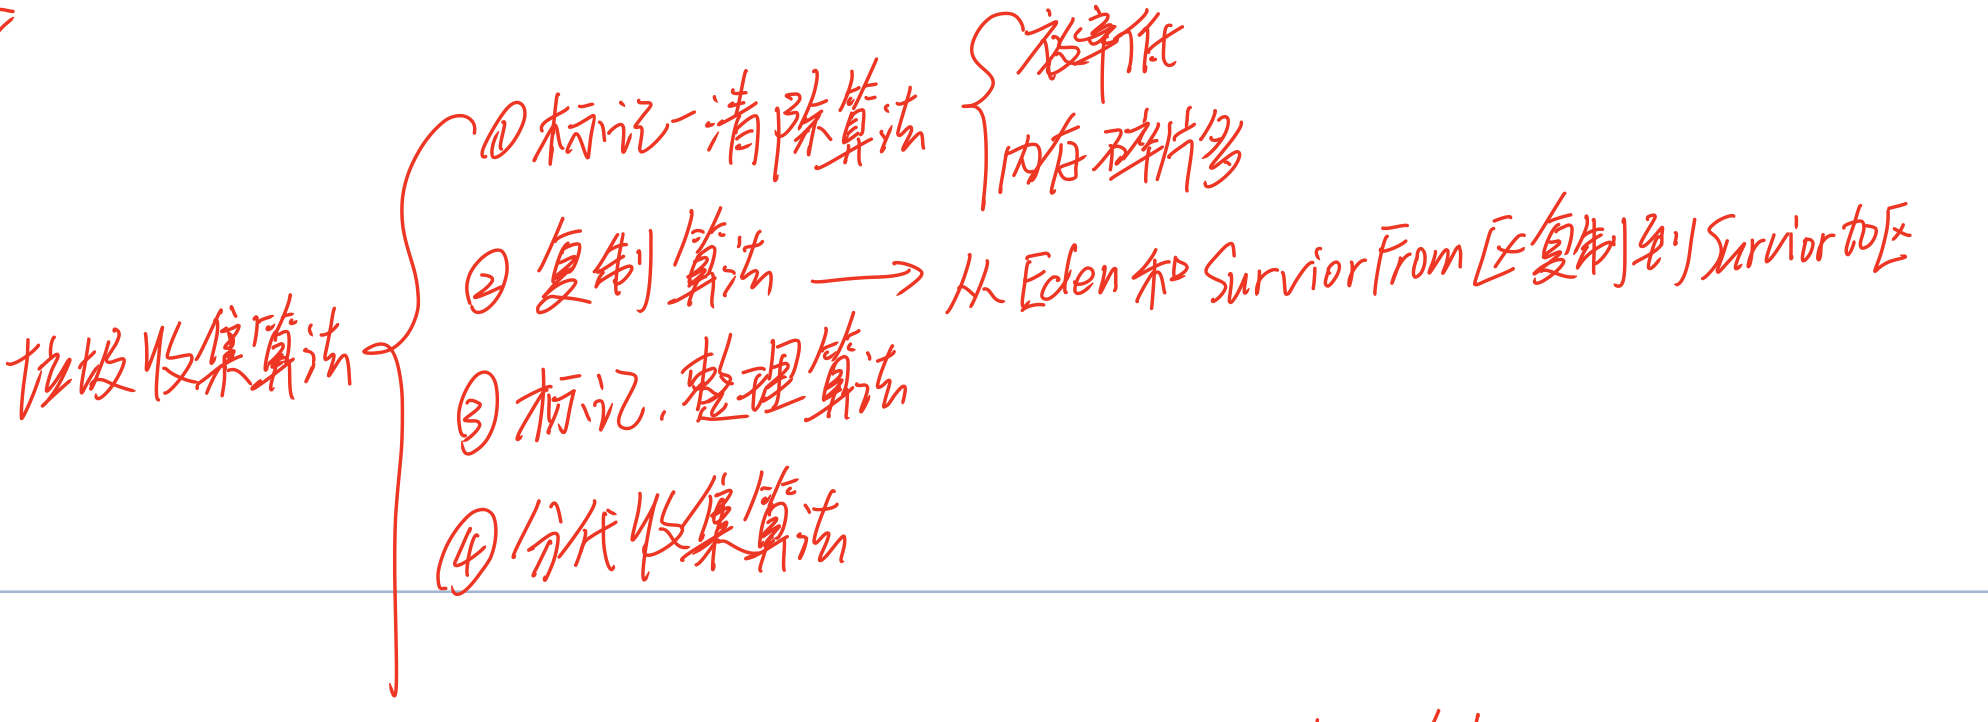 垃圾收集算法
①标记-清除算法
效率低
内存碎片多
②复制算法 → 从Eden和SurviorFrom区复制到Survior to区
③标记.整理算法
④分代收集算法